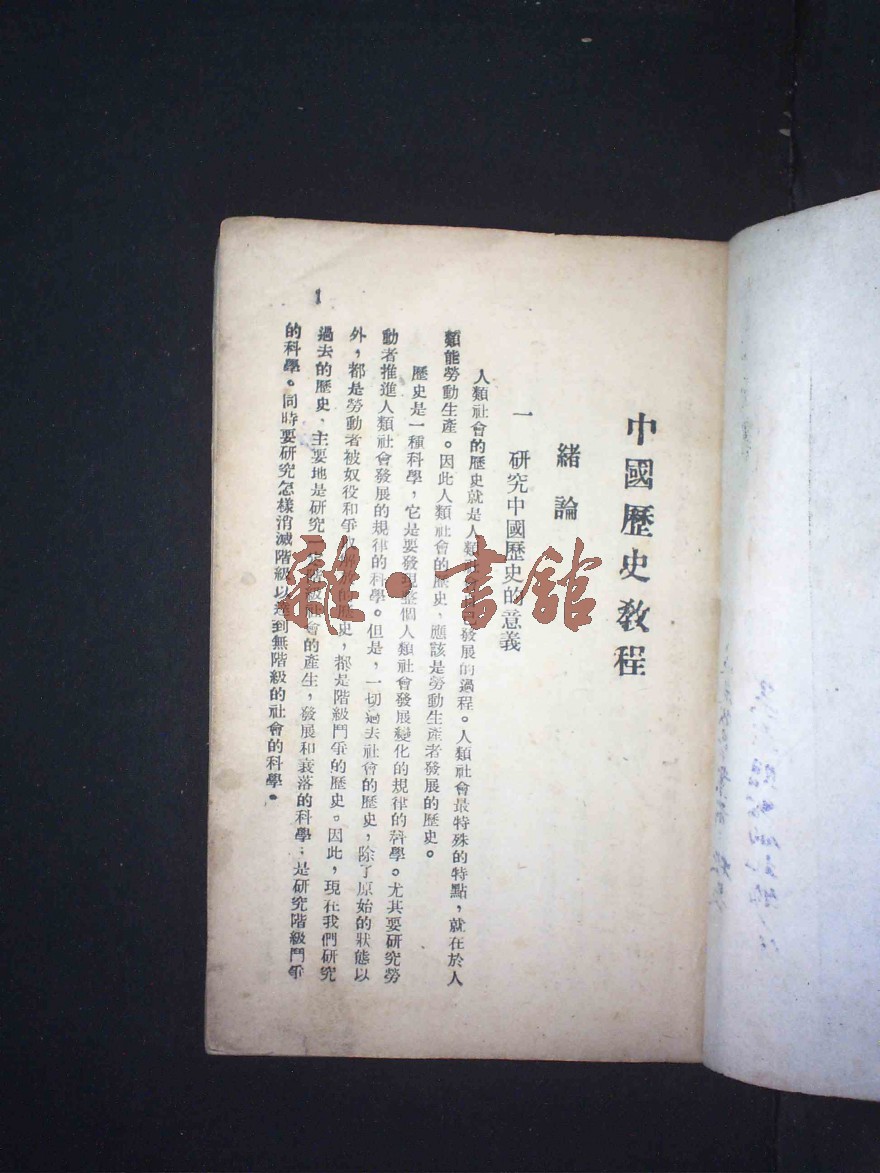 中國歷史教程
緒論
一 研究中國歷史的意義
人類社會的歷史就是人類社會自己發展的過程。人類社會最特殊的特點，就在於人
類能勞動生產。因此人類社會的歷史，應該是勞動生產者發展的歷史。
歷史是一種科學，它是要發現整個人類社會發展變化的規律的科學。尤其要研究勞
動者推進人類社會發展的規律的科學。但是，一切過去社會的歷史，除了原始的狀態以
外，都是勞動者被奴役和爭取解放的歷史，都是階級鬥爭的歷史。因此，現在我們研究
過去的歷史，主要地是研究階級社會的產生，發展和衰落的科學；是研究階級鬥爭
的科學。同時要研究怎樣消滅階級以達到無階級的社會的科學。
1
雜·書館